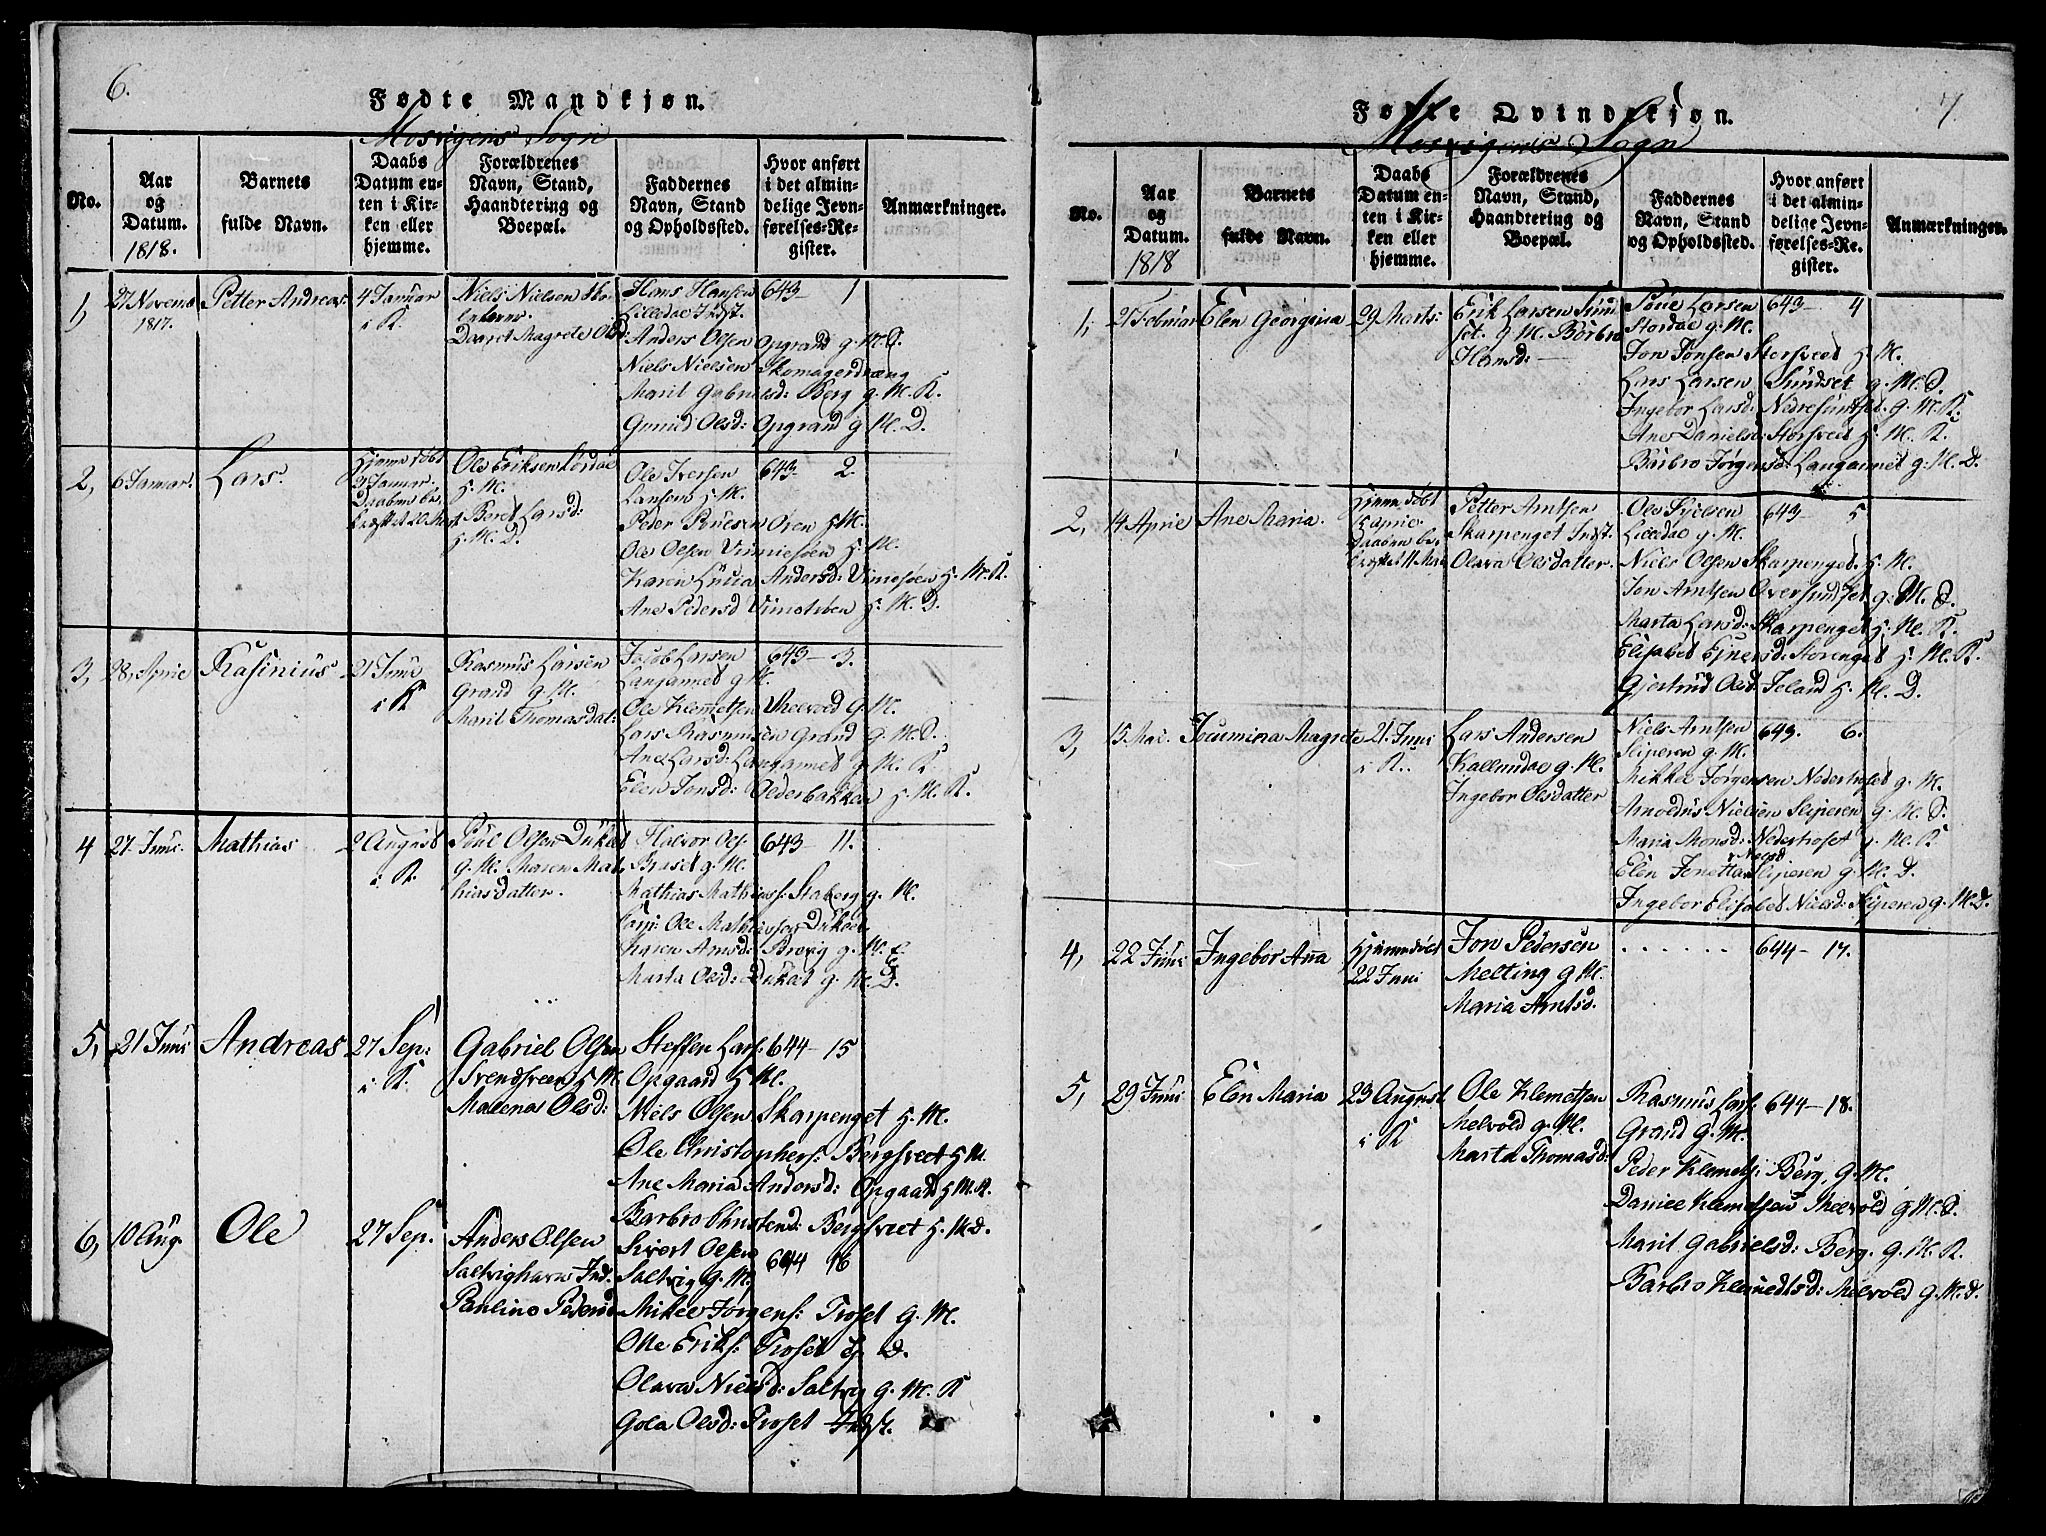 6.
Fødte Mandkjøn.
Mosvigens Sogn
No.
Aar
og
Datum.
1818.
Barnets
fulde Navn.
Daabs
Datum en-
ten i Kir-
ken eller
hjemme.
Forældrenes
Navn, Stand,
Haandtering og
Boepæl.
Faddernes
Navn, Stand
og Opholdssted.
Hvor anført
i det almin-
delige Jevn-
førelses-Re-
gister.
Anmærkninger.
1,
27 Novemb
1817.
Petter Andreas.
4 Januar
i K.
Niels Nielsen
Daaret Magrete Olsd:
Hans Hansen
Lilledal Indst.
Anders Olsen Opgrand g. M. S.
Niels Nielsen Skomagerdræng
Marit Gabrielsd: Berg g. M. K.
Gunild Olsd: Opgrand g M. D.
643 1
2,
6 Januar.
Lars.
Hjemmedøbt
9 Januar.
Daaben be-
kræftet 20 Mart
Ole Eriksen Lørdal
H. M.
Beret Larsd:
H. M. D.
Ole Iversen
Lansem H. M.
Peder Povelsen Øren H M.
Ole Olsen Vinnesøen H. M.
Karen Lucia Andersd: Vinnesøen H. M. K.
Ane Pedersd H. M. D.
643- 2.
3,
28, April
Rasinius
21 Juni
i K
Rasmus Larsen
Grand g. M.
Marit Thomasdat:
Jacob Larsen
Langannet g M.
Ole Klemetsen Melvold g. M.
Lars Rasmusen Grand g. M. S.
Ane Larsd: Langannet g. M. K.
Elen Jonsd: Olderbakken H. M. K.
643- 3.
4
27. Juni.
Mathias
2 August
i K.
Poul Olsen Duklet
g. M. Maren Mat-
hiasdatter.
Halvor Ols:
Braset g. M.
Mathias Mathiass: Staberg g. M.
Corp: Ole Mathiasen Duklet
Karen Arnsd: Brovig g. M. K.
Marta Olsd: Duklet g. M. D.
643- 11.
5,
21 Juni
Andreas
27 Sep:
i K.
Gabriel Olsen
Svendsveen H M.
Malena Olsd:
Steffen Lars:
Opgaard H M.
Niels Olsen Skarpenget H. M.
Ole Christophers: Bergsveet H M
Ane Maria Andersd: Opgaard H M. K.
Barbro Christend: Bergsveet H. M D.
644- 15
6,
10 Aug.
Ole
27 Sep.
Anders Olsen
Saltvighavn Ind.
Paulina Pedersd
Sivert Olsen
Saltvig g. M.
Mikel Jørgens: Troset g. M.
Olle Eriks: Troset
Olava Nielsd: Saltvig g. M. K
Gola Olsd: Troset Indst.
644 16
7
Fødte Qvindekjøn.
Mosvigens Sogn
No.
Aar
og
Datum.
1818
Barnets
fulde Navn.
Daabs
Datum en-
ten i Kir-
ken eller
hjemme.
Forældrenes
Navn, Stand,
Haandtering og
Boepæl.
Faddernes
Navn, Stand
og Opholdssted.
Hvor anført
i det almin-
delige Jevn-
førelses-Re-
gister.
Anmærkninger.
1,
21 Februar
Elen Georgina
29 Marts:
Erik Larsen Sund
set. g M. Barbro
Hansd:
Poul Larsen
Stordal g. M.
Jon Jonsen Storsveet H. M.
Lars Larsen Sundset g. M. S.
Ingebor Larsd: Nedresundset. g. M. K.
Ane Danielsd: Storsveet H. M. K.
Barbro Jørgensd: Langannet g. M. D.
643- 4
2,
14 April
Ane Maria.
Hjemmedøbt
15 April.
Daaben be-
kræftet 11 Mai
Petter Arntsen
Skarpenget Indst.
Olava Olsdatter.
Ole
Lilledal g. M.
Niels Olsen Skarpenget. H. M.
Jon Arntsen Oversundset g. M. S.
Marta Larsd: Skarpenget H. M. K.
Elisabet Ejnersd: Storenget H. M. K.
Gjertrud Olsd: H. M. D.
643- 5
3,
15 Mai.
Jocumina Magrete
21. Juni
i K.
Lars Andersen
Kallundal g. M.
Ingebor Olsdatter
Niels Arntsen
Sliperen g. M.
Mikkel Jørgensen Nedertroset g. M.
Arnoldus Nielsen Sliperen g. M. S.
Maria Monsd: Nedertroset g. M. K
Elen Jonetta Nielsd Sliperen g. M. D.
Ingebor Elisabet Nielsd: Sliperen g. M. D.
643. 6.
4,
22 Juni
Ingebor Ana
Hjemmedøbt
22 Juni
Jon Pedersen
Melting g M.
Maria Arntsd.
. . . . . .
644- 17.
5,
29 Juni
Elen Maria
23 August
i K
Ole Klemetsen
Melvold g. M.
Marta Thomasd:
Rasmus Lars:
Grand g. M.
Peder Klemets: Berg, g. M.
Daniel Klemetsen Melvold g. M. S.
Marit Gabrielsd: Berg. g. M. K.
Barbro Klemedtsd: Melvold g. M. d.
644- 18.